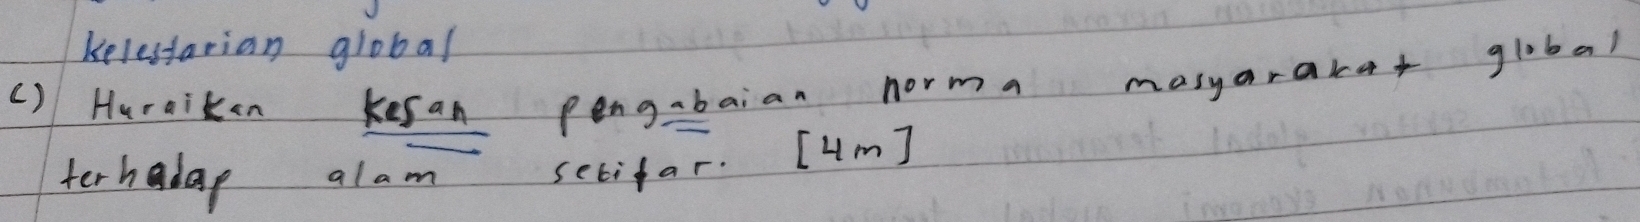 kelestarian global
c) Huraikan kesan pengabaian norma masyarakat global
terhadap alam sekitar. [4m]